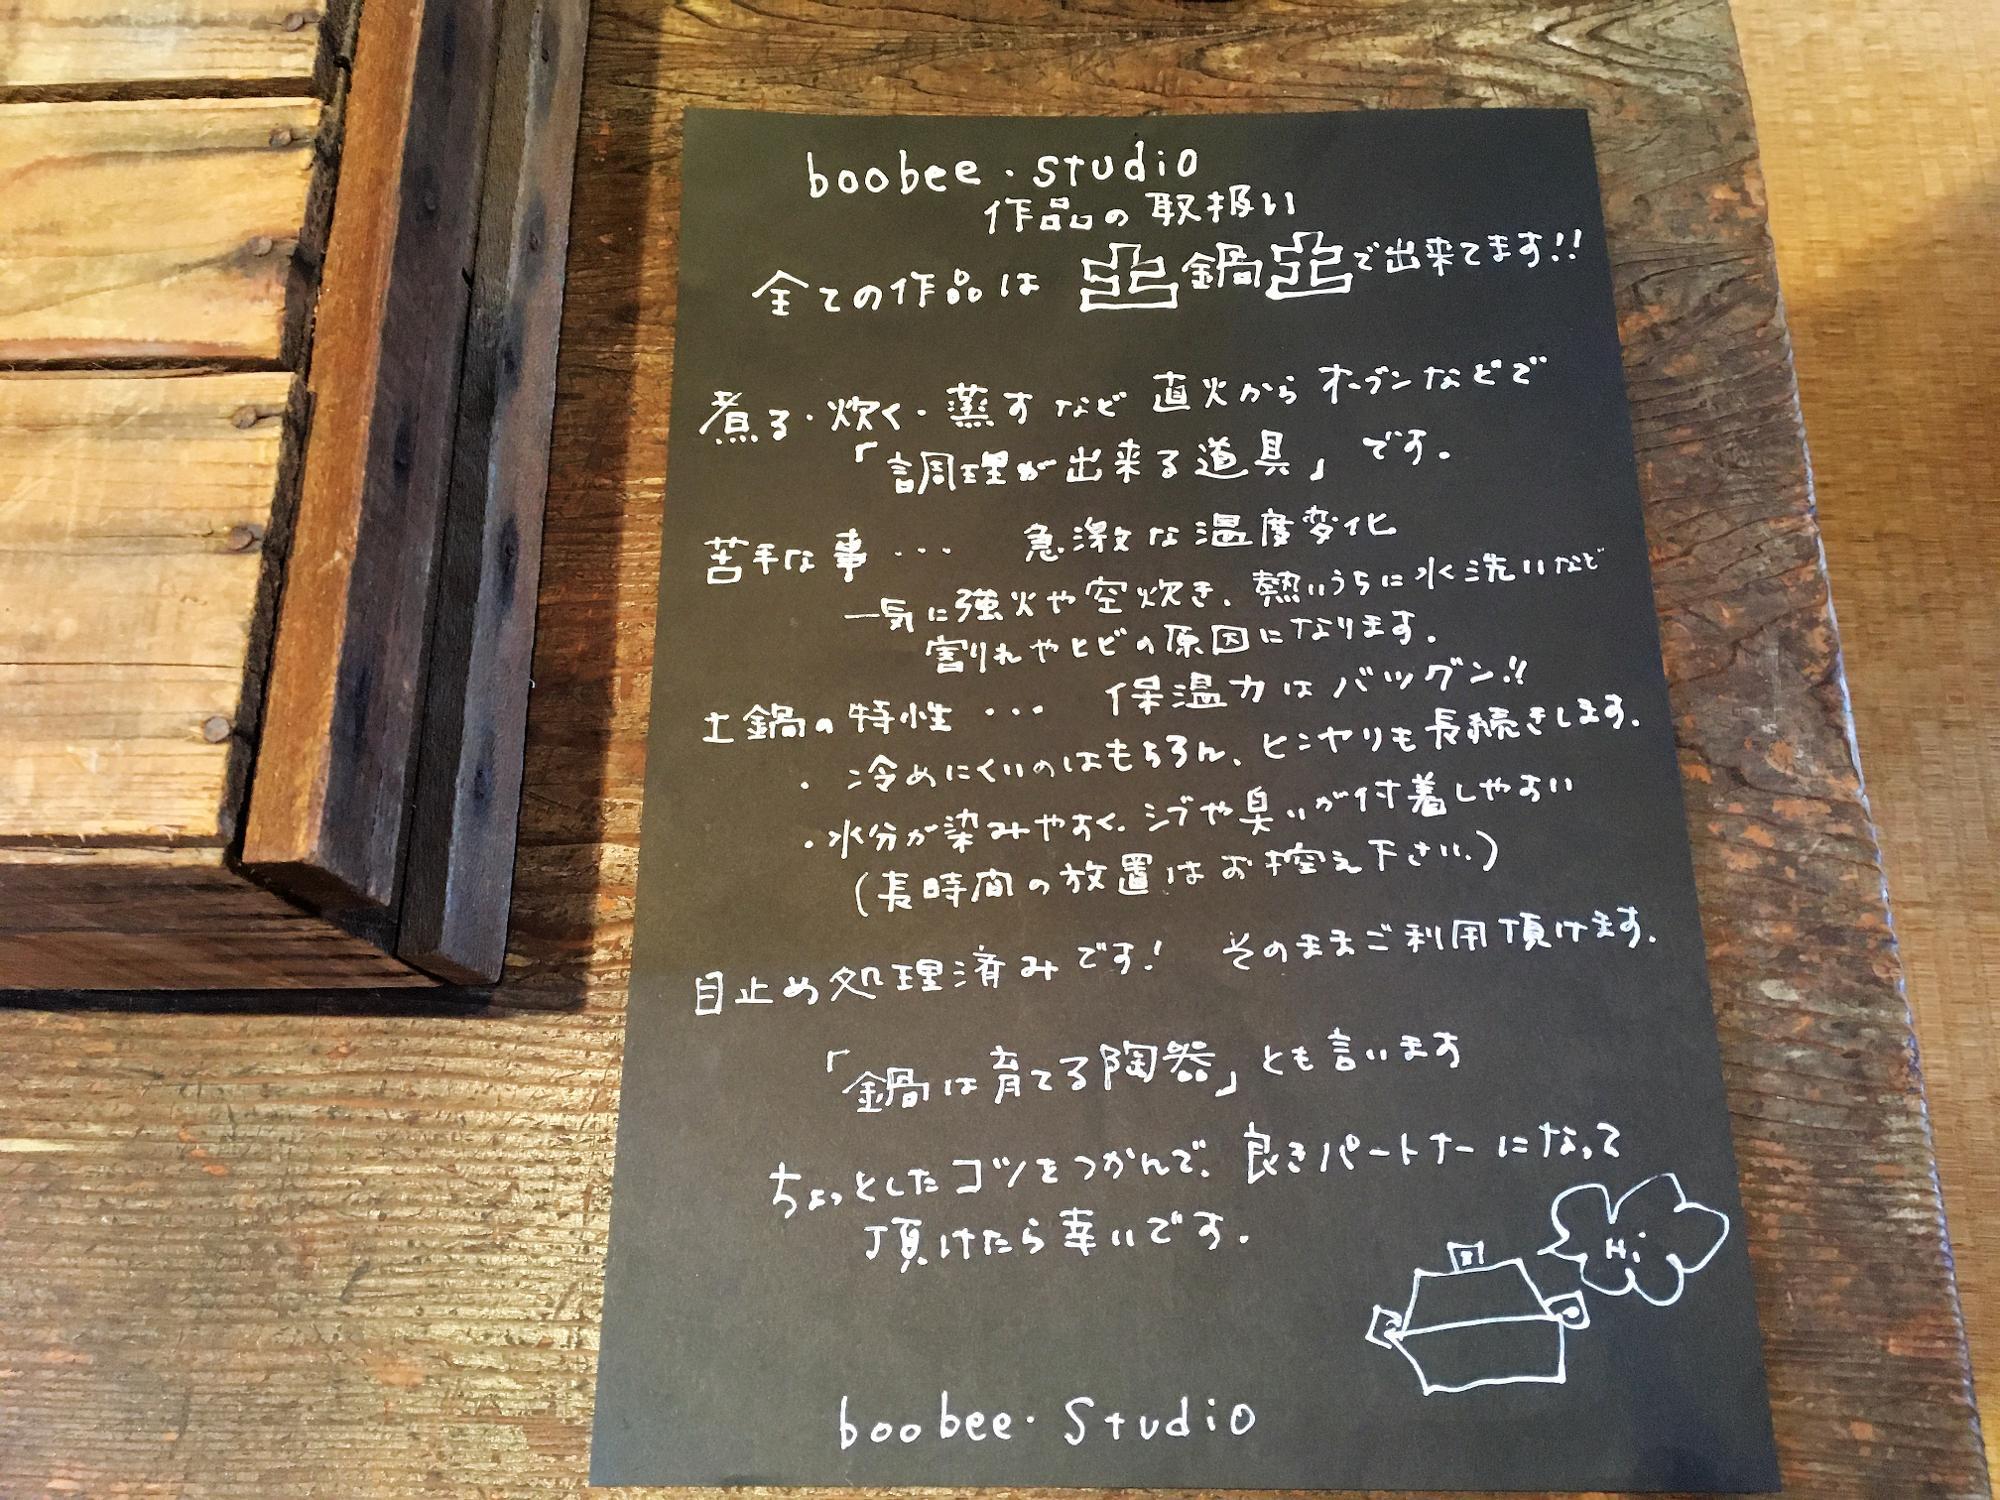 boobee・studio
作品の取扱い
全ての作品は 土鍋土で出来てます!!
煮る・炊く・蒸すなど 直火からオーブンなどで
「調理が出来る道具」です。
苦手な事・・・ 急激な温度変化
一気に強火や空炊き、熱いうちに水洗いなど
割れやヒビの原因になります。
土鍋の特性・・・ 保温力はバツグン!!
・冷めにくいのはもちろん、ヒンヤリも長続きします。
・水分が染みやすく、シブや臭いが付着しやすい
(長時間の放置はお控え下さい。)
目止め処理済みです! そのままご利用頂けます。
「鍋は育てる陶器」とも言います
ちょっとしたコツをつかんで、良きパートナーになって
頂けたら幸いです。
Hi
boobee・Studio